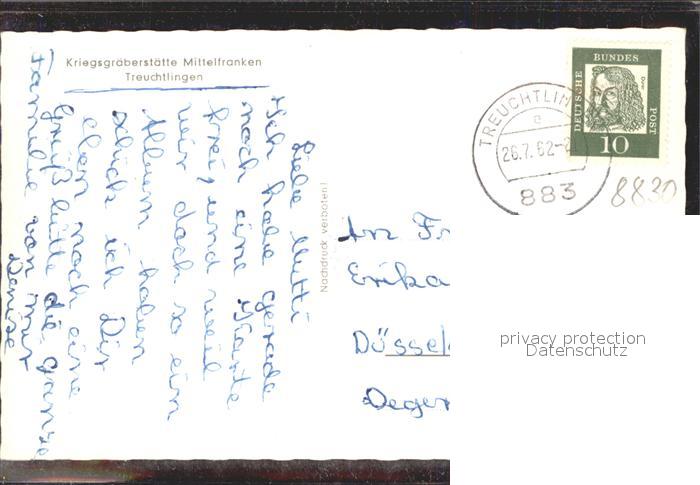 Kriegsgräberstätte Mittelfranken
Treuchtlingen
Liebe Mutti
Ich habe gerade
noch eine Karte
frei, und weil
wir doch so ein
Album haben
schick ich Dir
eben noch eine
Grüß bitte die ganze
Familie von mir
Denise
Nachdruck verboten!
TREUCHTLIN
e
26.7.62-
883
DEUTSCHE BUNDES POST
Dürer
10
8830
An Fr
Erika
Düssel
Deger
privacy protection
Datenschutz